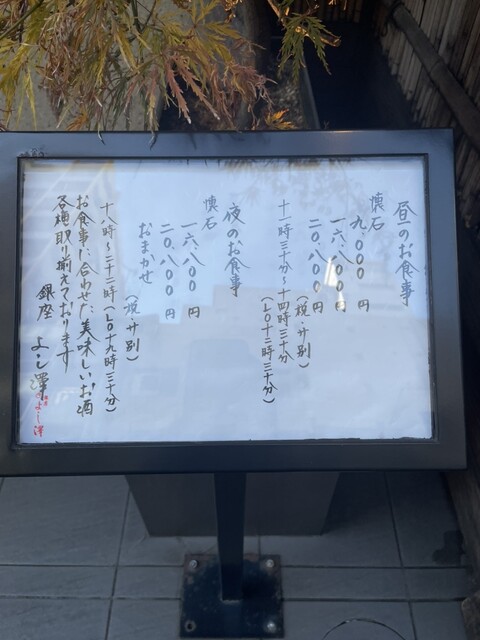 昼のお食事
懐石
九、000 円
一六、八00 円
二0、八00 円
(税・サ別)
十一時三十分〜十四時三十分
(L0十二時三十分)
夜のお食事
懐石
一六、八00 円
二0、八00 円
おまかせ
(税・サ別)
十八時〜二十二時(L0十九時三十分)
お食事に合わせた美味しいお酒
各種取り揃えております
銀座 よし澤
よし澤